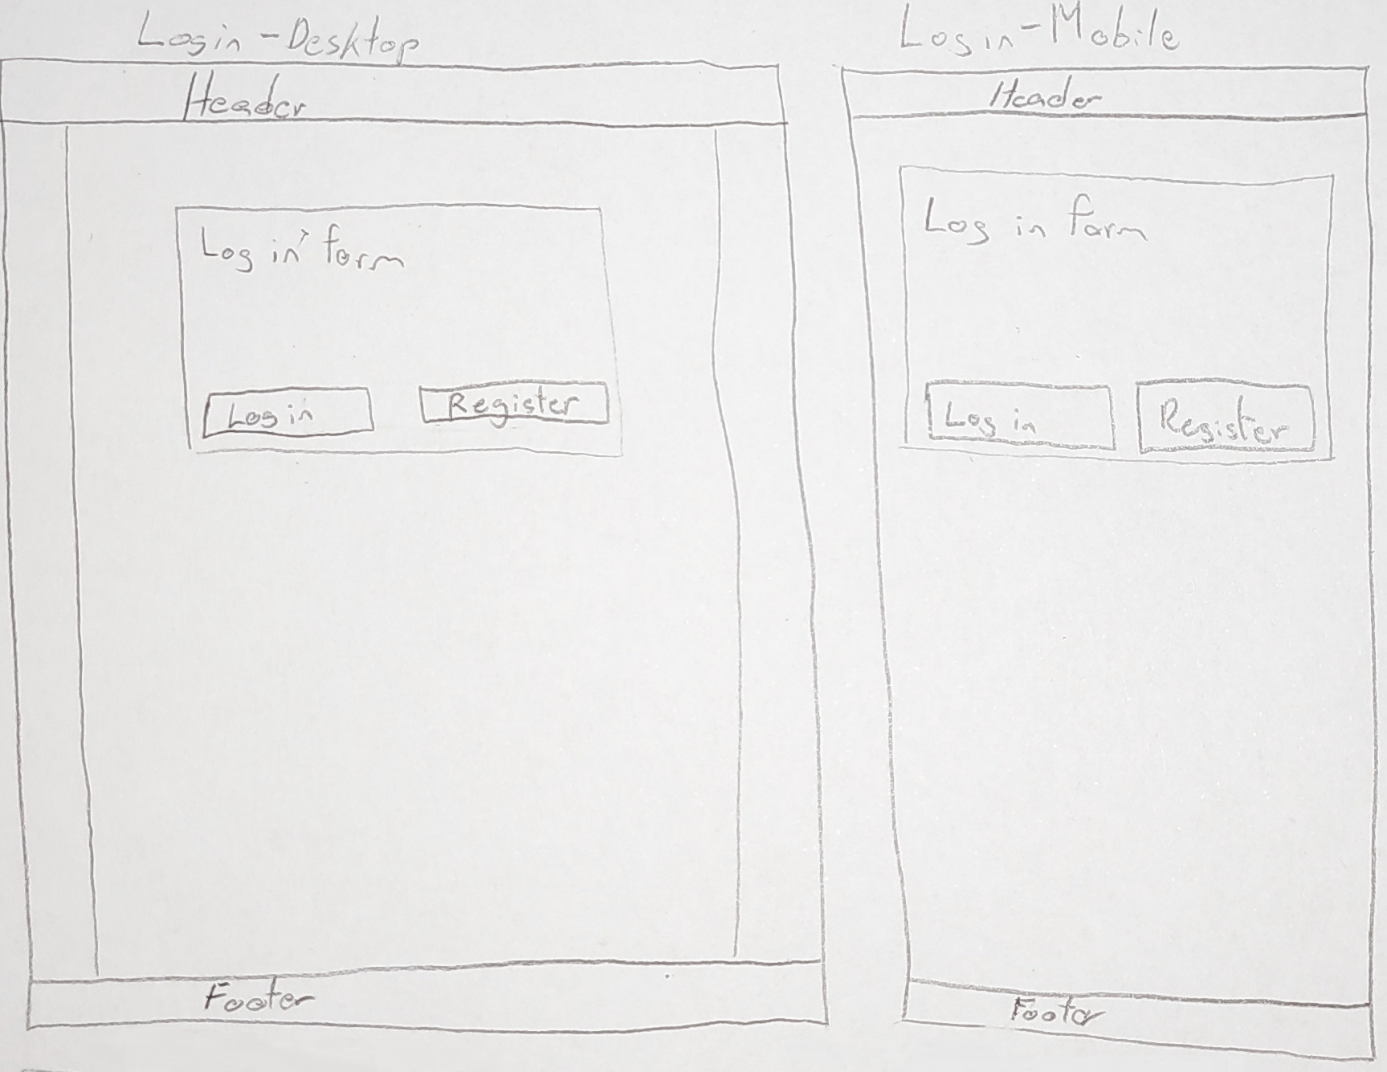 Login - Desktop
Header
Log in form
Log in
Register
Footer
Login - Mobile
Header
Log in form
Log in
Register
Footer